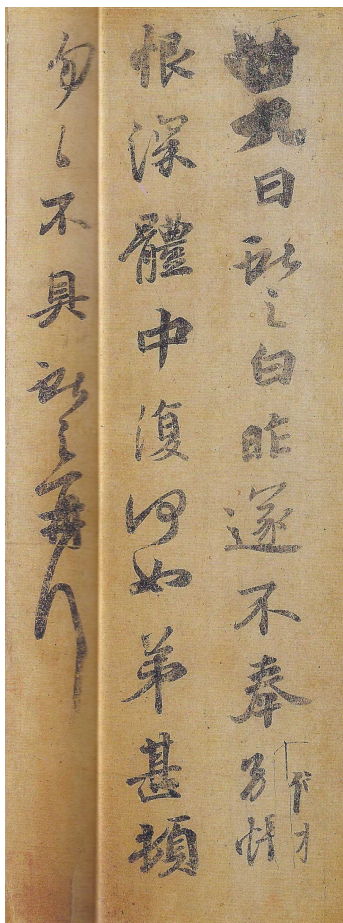 廿九日獻之白昨遂不奉別悵
恨深體中復何如弟甚頓
匆々不具獻之再行